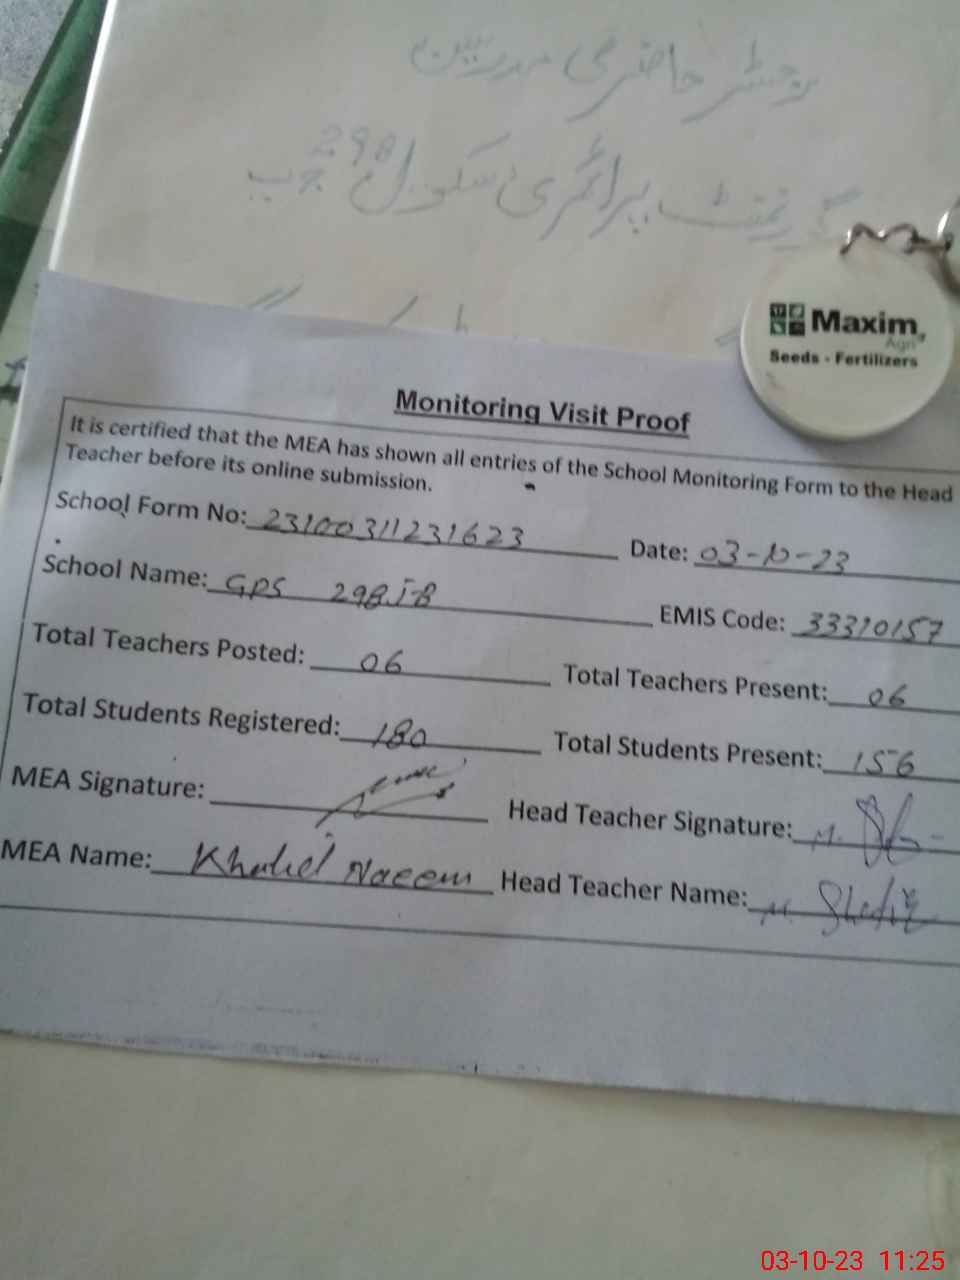 رجسٹر حاضری مدرسین
گورنمنٹ پرائمری سکول 298 ج ب
Maxim
Agri
Seeds - Fertilizers
Monitoring Visit Proof
It is certified that the MEA has shown all entries of the School Monitoring Form to the Head
Teacher before its online submission.
School Form No: 23100311231623 Date: 03-10-23
School Name: GPS 298 J-B EMIS Code: 33310157
Total Teachers Posted: 06 Total Teachers Present: 06
Total Students Registered: 180 Total Students Present: 156
MEA Signature: Head Teacher Signature:
MEA Name: Khalid Naeem Head Teacher Name: M. Shafiq
03-10-23 11:25